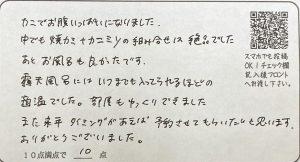 カニでお腹いっぱいになりました。
中でも焼カニ+カニミソの組み合せは絶品でした
あとお風呂も良かったです。
露天風呂にはいつまでも入ってられるほどの
湯温でした。部屋もゆっくりできました
また来年タイミングがあえば予約させてもらいたいと思います。
ありがとうございました。
10点満点で 10 点
スマホでも投稿
OK！チェック欄
記入後フロント
へお渡し下さい。